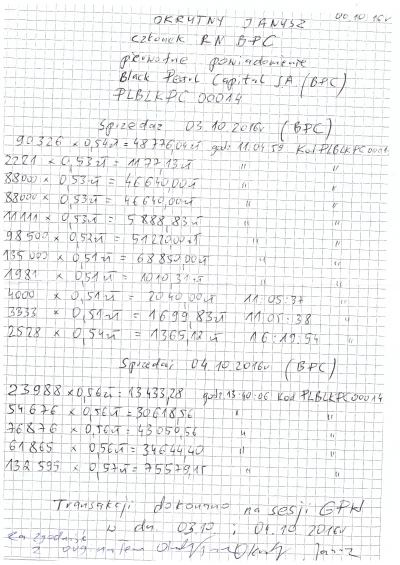 OKRUTNY JANUSZ
członek RN BPC
pierwotne powiadomienie
Black Pearl Capital SA (BPC)
PLBLKPC 00014
Sprzedaż 03.10.2016r (BPC)
90326 x 0,54zł = 48776,04zł godz 11.04.59 Kod PLBLKPC0001
2221 x 0,53zł = 1177,13zł " "
88000 x 0,53zł = 46640,00zł " "
88000 x 0,53zł = 46640,00zł " "
11111 x 0,53zł = 5888,83zł " "
98500 x 0,52zł = 51220,00zł " "
135000 x 0,51zł = 68850,00zł " "
1981 x 0,51zł = 1010,31zł " "
4000 x 0,51zł = 2040,00zł 11:05:37 "
3333 x 0,51zł = 1699,83zł 11:05:38 "
2528 x 0,54zł = 1365,12zł 16:19.54 "
Sprzedaż 04.10.2016r (BPC)
23988 x 0,56zł = 13433,28 godz 13:40:06 Kod PLBLKPC00014
54676 x 0,56zł = 30618,56 " "
76876 x 0,56zł = 43050,56 " "
61865 x 0,56zł = 34644,40 "
132595 x 0,57zł = 75579,15 "
Transakcji dokonano na sesji GPW
w dn. 03.10 i 04.10.2016r
Za zgodność
z oryginałem